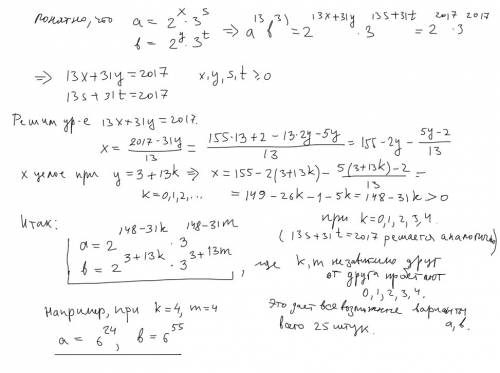 понятно, что a = 2^x · 3^s
b = 2^y · 3^t
=> a^13 b^31 = 2^(13x+31y) · 3^(13s+31t) = 2^2017 · 3^2017
=> 13x+31y = 2017
13s+31t = 2017
x, y, s, t ≥ 0
Решим ур-е 13x+31y = 2017.
x = (2017-31y)/13 = (155·13+2-13·2y-5y)/13 = 155-2y - (5y-2)/13
x целое при y = 3+13k => x = 155-2(3+13k) - (5(3+13k)-2)/13 =
k = 0,1,2,... = 149-26k-1-5k = 148-31k > 0
при k = 0,1,2,3,4.
(13s+31t = 2017 решается аналогично)
Итак:
a = 2^(148-31k) · 3^(148-31m)
b = 2^(3+13k) · 3^(3+13m), где k, m независимо друг
от друга пробегают
0,1,2,3,4.
Например, при k=4, m=4
a = 6^24, b = 6^55
Это даёт все возможные варианты a, b.
всего 25 штук.